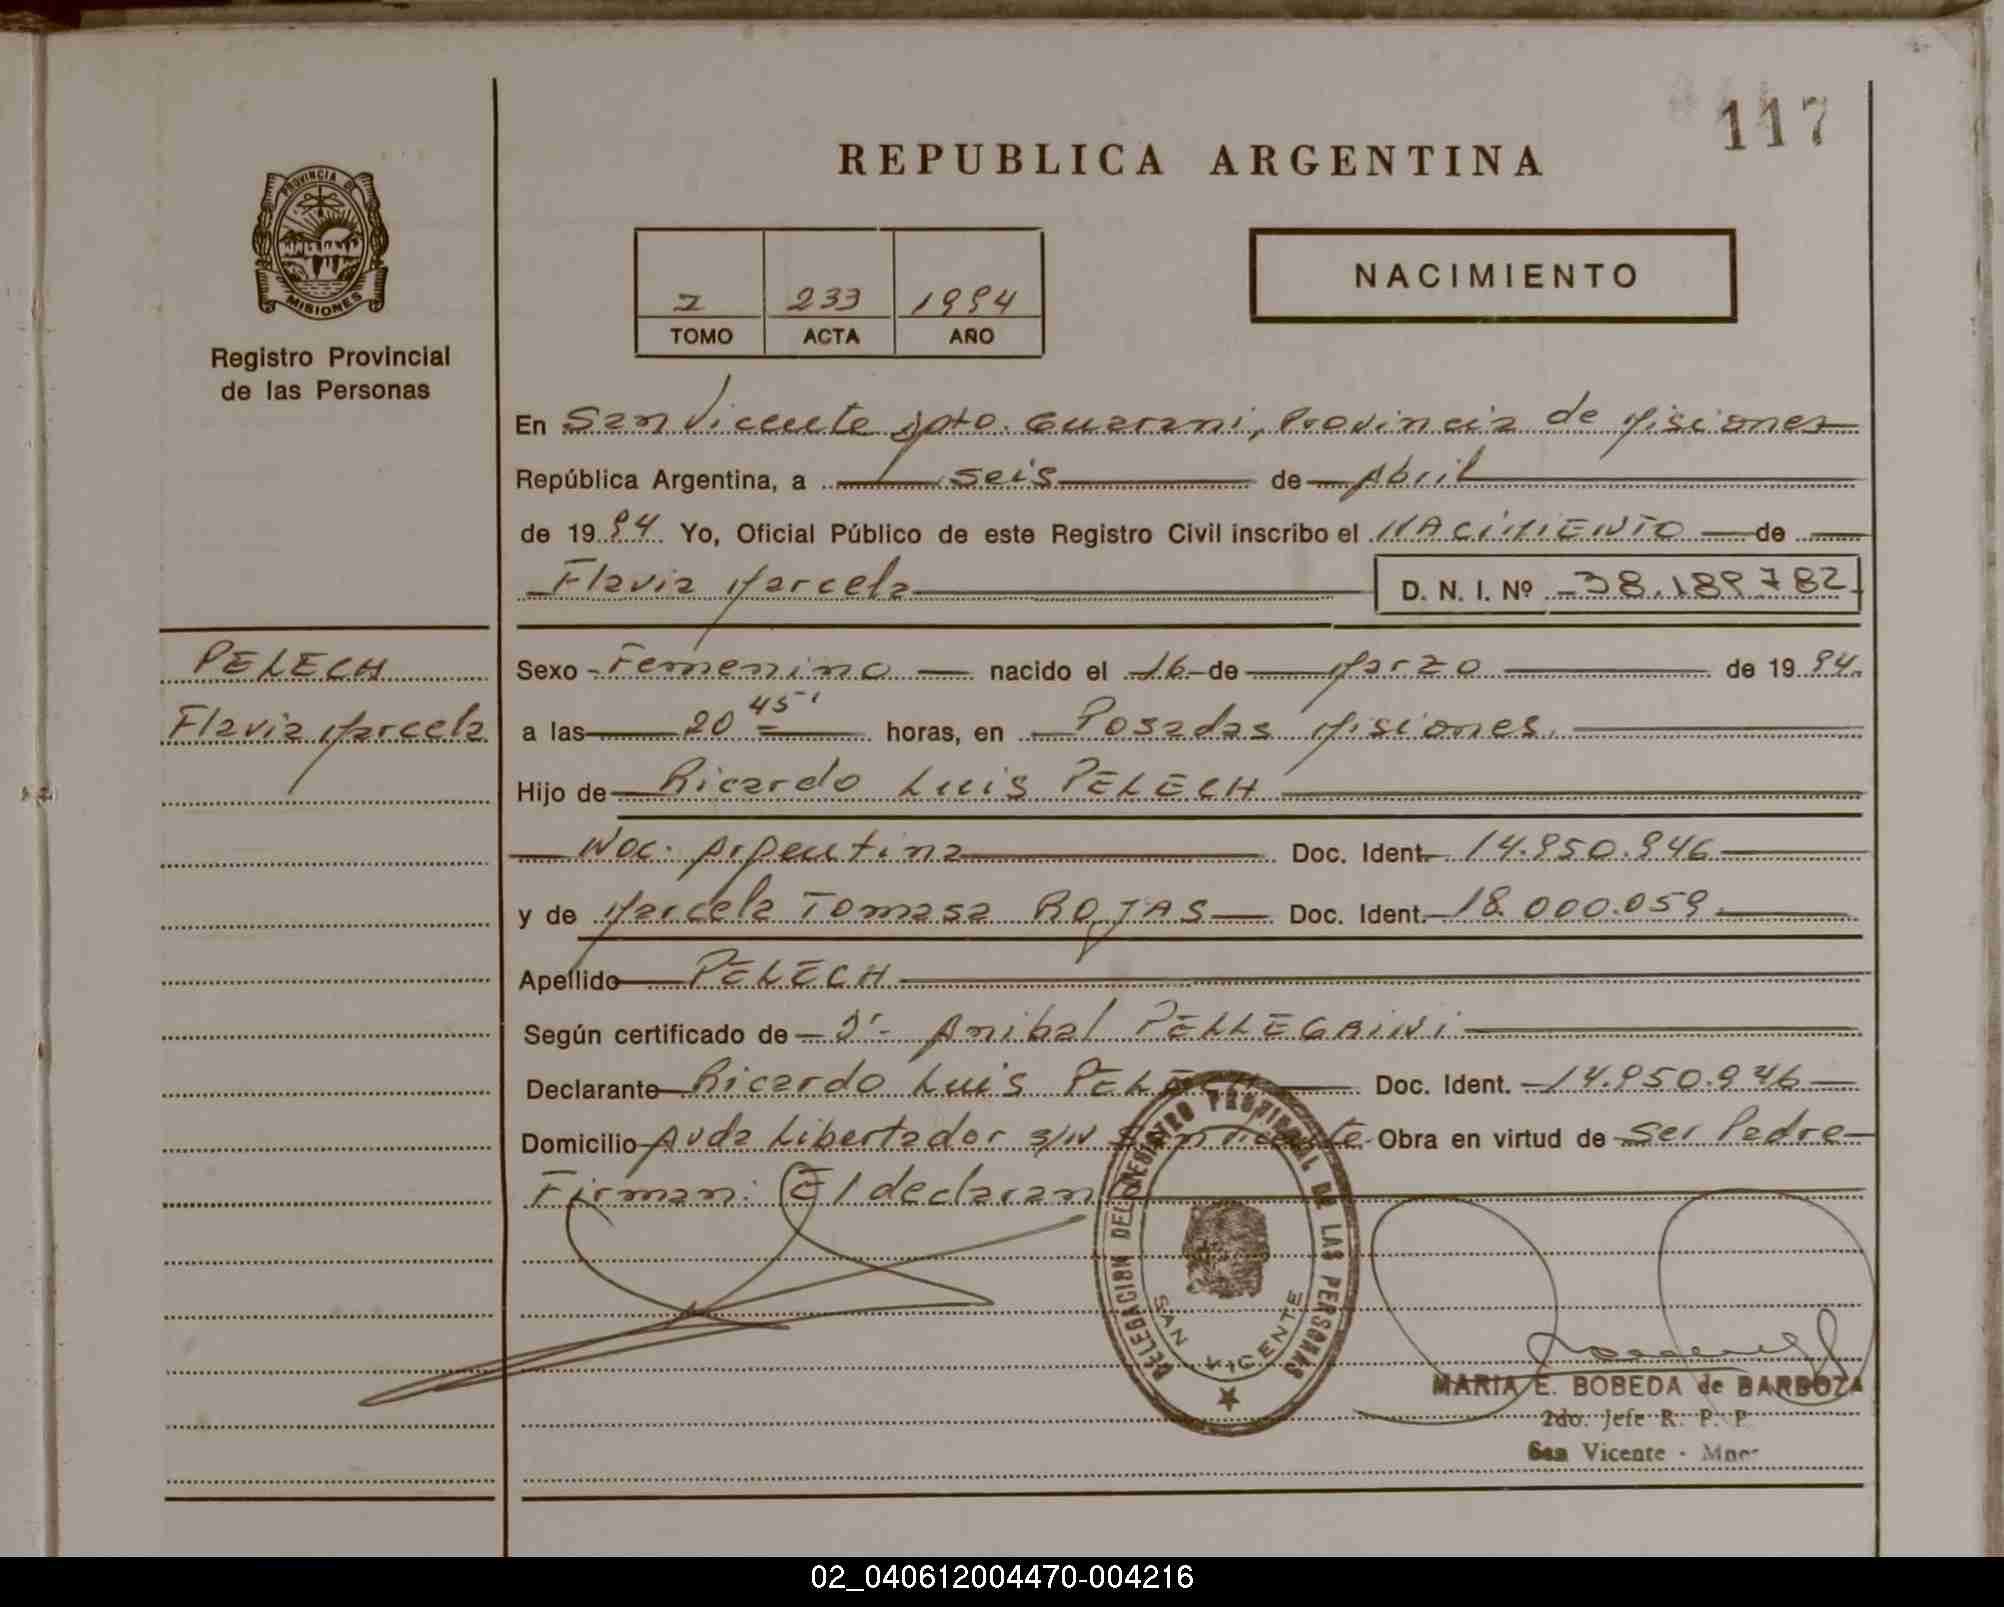 117
REPUBLICA ARGENTINA
PROVINCIA DE MISIONES
Registro Provincial
de las Personas
I 233 1994
TOMO ACTA AÑO
NACIMIENTO
En San Vicente Dpto. Guarani, Provincia de Misiones
República Argentina, a seis de Abril
de 1994 Yo, Oficial Público de este Registro Civil inscribo el NACIMIENTO de
Flavia Marcela D. N. I. Nº 38.189.782
PELECH
Flavia Marcela
Sexo Femenino nacido el 16 de Marzo de 1994
a las 20 45' horas, en Posadas Misiones.
Hijo de Ricardo Luis PELECH
Nac. Argentina Doc. Ident. 14.950.946
y de Marcela Tomasa ROJAS Doc. Ident. 18.000.059
Apellido PELECH
Según certificado de Dr. Anibal PELLEGRINI
Declarante Ricardo Luis PELECH Doc. Ident. 14.950.946
Domicilio Avda Libertador s/N San Vicente Obra en virtud de ser Padre
Firman: El declaran
DELEGACION DEL REGISTRO PROVINCIAL DE LAS PERSONAS
SAN VICENTE
MARIA E. BOBEDA de BARBOZA
2do. Jefe R. P. P
San Vicente - Mnes
02_040612004470-004216